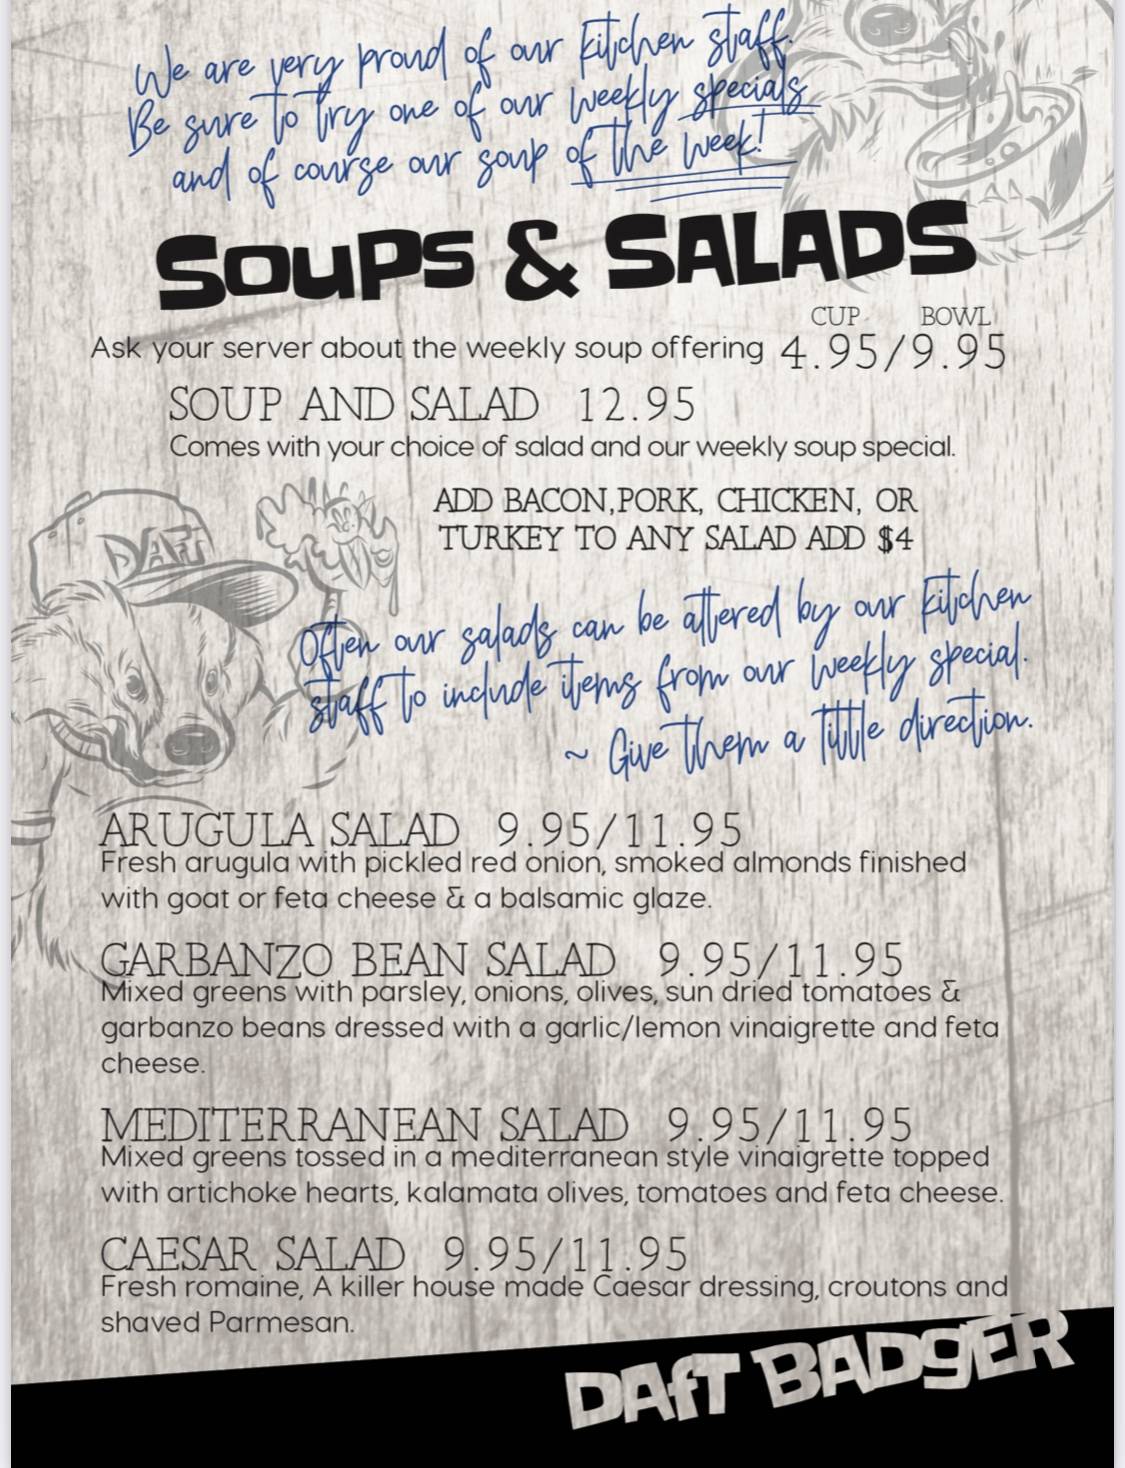 We are very proud of our kitchen staff.
Be sure to try one of our weekly specials
and of course our soup of the week!
SOUPS & SALADS
CUP BOWL
Ask your server about the weekly soup offering 4.95/9.95
SOUP AND SALAD 12.95
Comes with your choice of salad and our weekly soup special.
ADD BACON,PORK, CHICKEN, OR
TURKEY TO ANY SALAD ADD $4
DAFT
Often our salads can be altered by our kitchen
staff to include items from our weekly special.
~ Give them a little direction.
ARUGULA SALAD 9.95/11.95
Fresh arugula with pickled red onion, smoked almonds finished
with goat or feta cheese & a balsamic glaze.
GARBANZO BEAN SALAD 9.95/11.95
Mixed greens with parsley, onions, olives, sun dried tomatoes &
garbanzo beans dressed with a garlic/lemon vinaigrette and feta
cheese.
MEDITERRANEAN SALAD 9.95/11.95
Mixed greens tossed in a mediterranean style vinaigrette topped
with artichoke hearts, kalamata olives, tomatoes and feta cheese.
CAESAR SALAD 9.95/11.95
Fresh romaine, A killer house made Caesar dressing, croutons and
shaved Parmesan.
DAfT BADgER